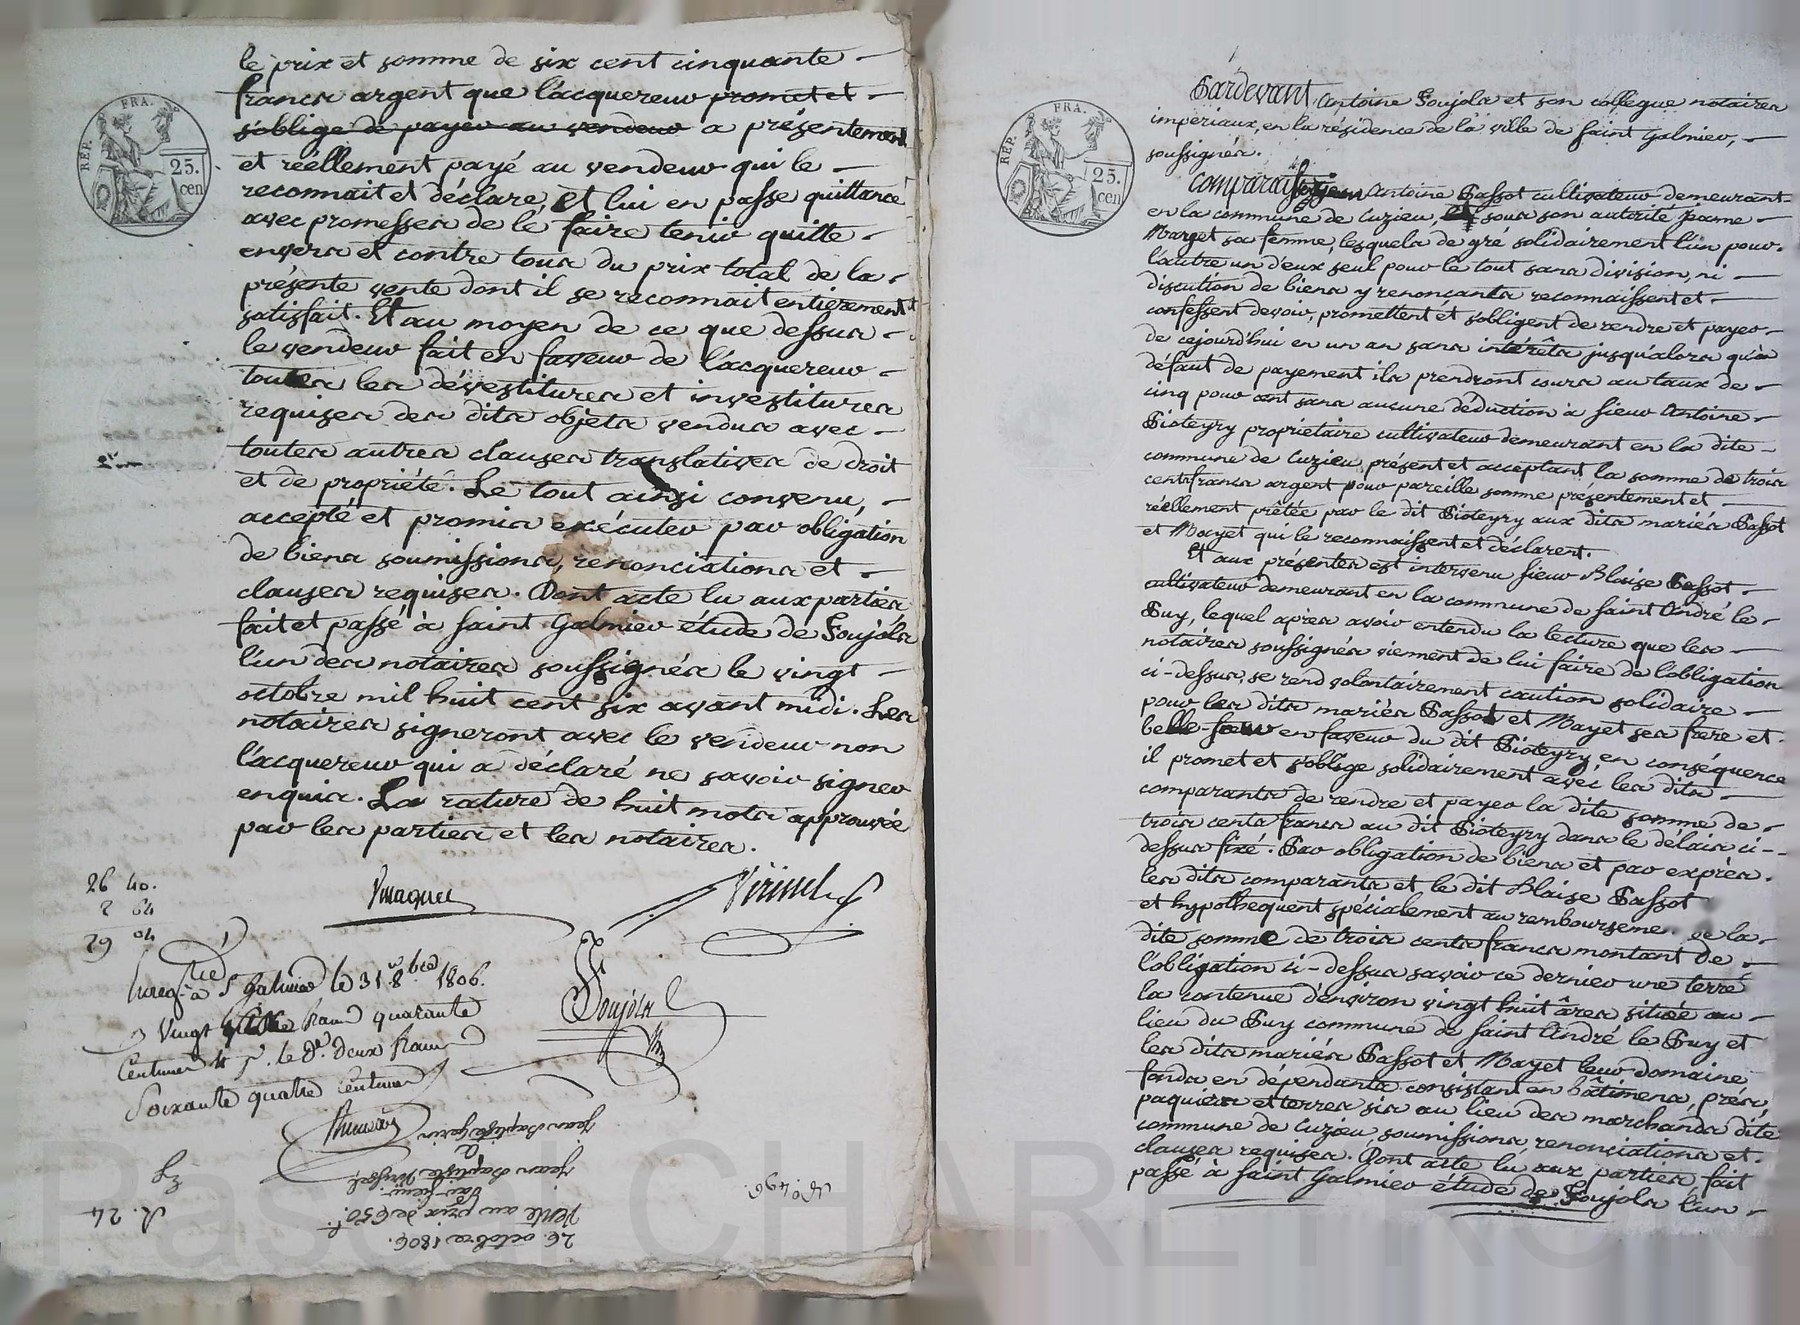 le prix et somme de six cent cinquante
francs argent que l'acquereur promet et
s'oblige de payer au vendeur a présentement
et réellement payé au vendeur qui le
reconnait et déclare, et lui en passe quittance
avec promesses de le faire tenir quitte
envers et contre tous du prix total de la
présente vente dont il se reconnait entièrement
satisfait. Et au moyen de ce que dessus
le vendeur fait en faveur de l'acquereur
toutes les dévestitures et investitures
requises des dits objets vendus avec
toutes autres clauses translatives de droit
et de propriété. Le tout ainsi convenu,
accepté et promis exécuter par obligation
de biens soumissions, renonciations et
clauses requises. Dont acte lu aux parties
fait et passé à saint Galmier étude de Poujola
l'un des notaires soussignés le vingt
octobre mil huit cent six avant midi. Les
notaires signeront avec le vendeur non
l'acquereur qui a déclaré ne savoir signer
enquis. La rature de huit mots approuvée
par les parties et les notaires.
26 40.
2 64
29 04
Poujola
à St Galmier le 31 8bre 1806.
vingt francs quarante
Centimes le De deux francs
Soixante quatre Centimes
Jean Baptiste
à
Jean Baptiste
Vente au prix de 650.f
26 octobre 1806.
N.o 496.
R. 24
RÉP. FRA.
25.
cen
Pardevant Antoine Poujola et son collègue notaires
impériaux, en la résidence de la ville de saint Galmier,
soussignés.
Antoine Passot cultivateur demeurant
en la commune de Cuzieu, et sous son autorité jeanne
Mayet sa femme, lesquels de gré solidairement l'un pour
l'autre un d'eux seul pour le tout sans division, ni
discution de biens y renonçants reconnaissent et
confessent devoir, promettent et s'obligent de rendre et payer
de cejourd'hui en un an sans intérêts jusqu'alors qu'à
défaut de payement ils prendront cours au taux de
cinq pour cent sans aucune déduction à sieur Antoine
Pioteyry proprietaire cultivateur demeurant en la dite
commune de Cuzieu, présent et acceptant la somme de trois
cents francs argent pour pareille somme présentement et
réellement prêtée par le dit Pioteyry aux dits mariés Passot
et Mayet qui le reconnaissent et déclarent.
Et aux présentes est intervenu sieur Blaise Passot
cultivateur demeurant en la commune de saint André le
Puy, lequel après avoir entendu la lecture que les
notaires soussignés viennent de lui faire de l'obligation
ci-dessus, se rend volontairement caution solidaire
pour les dits mariés Passot et Mayet ses frere et
belle-sœur en faveur du dit Pioteyry, en conséquence
il promet et s'oblige solidairement avec les dits
comparants de rendre et payer la dite somme de
trois cents francs au dit Pioteyry dans le délais ci-
dessus fixé. Par obligation de biens et par exprès.
les dits comparants et le dit Blaise Passot
et hypothequent spécialement au remboursement de la
dite somme de trois cents francs montant de
l'obligation ci-dessus savoir ce dernier une terre
la contenue d'environ vingt huit âres située au
lieu du Puy commune de saint André le Puy et
les dits mariés Passot et Mayet leur domaine
fonds en dépendants consistant en bâtimens, prés,
paquiers et terres sis au lieu des marchands dite
commune de Cuzieu, soumissions renonciations et
clauses requises. Dont acte lu aux parties fait
passé à saint Galmier étude de Poujola l'un
RÉP. FRA.
25.
cen
Pascal CHARETRON